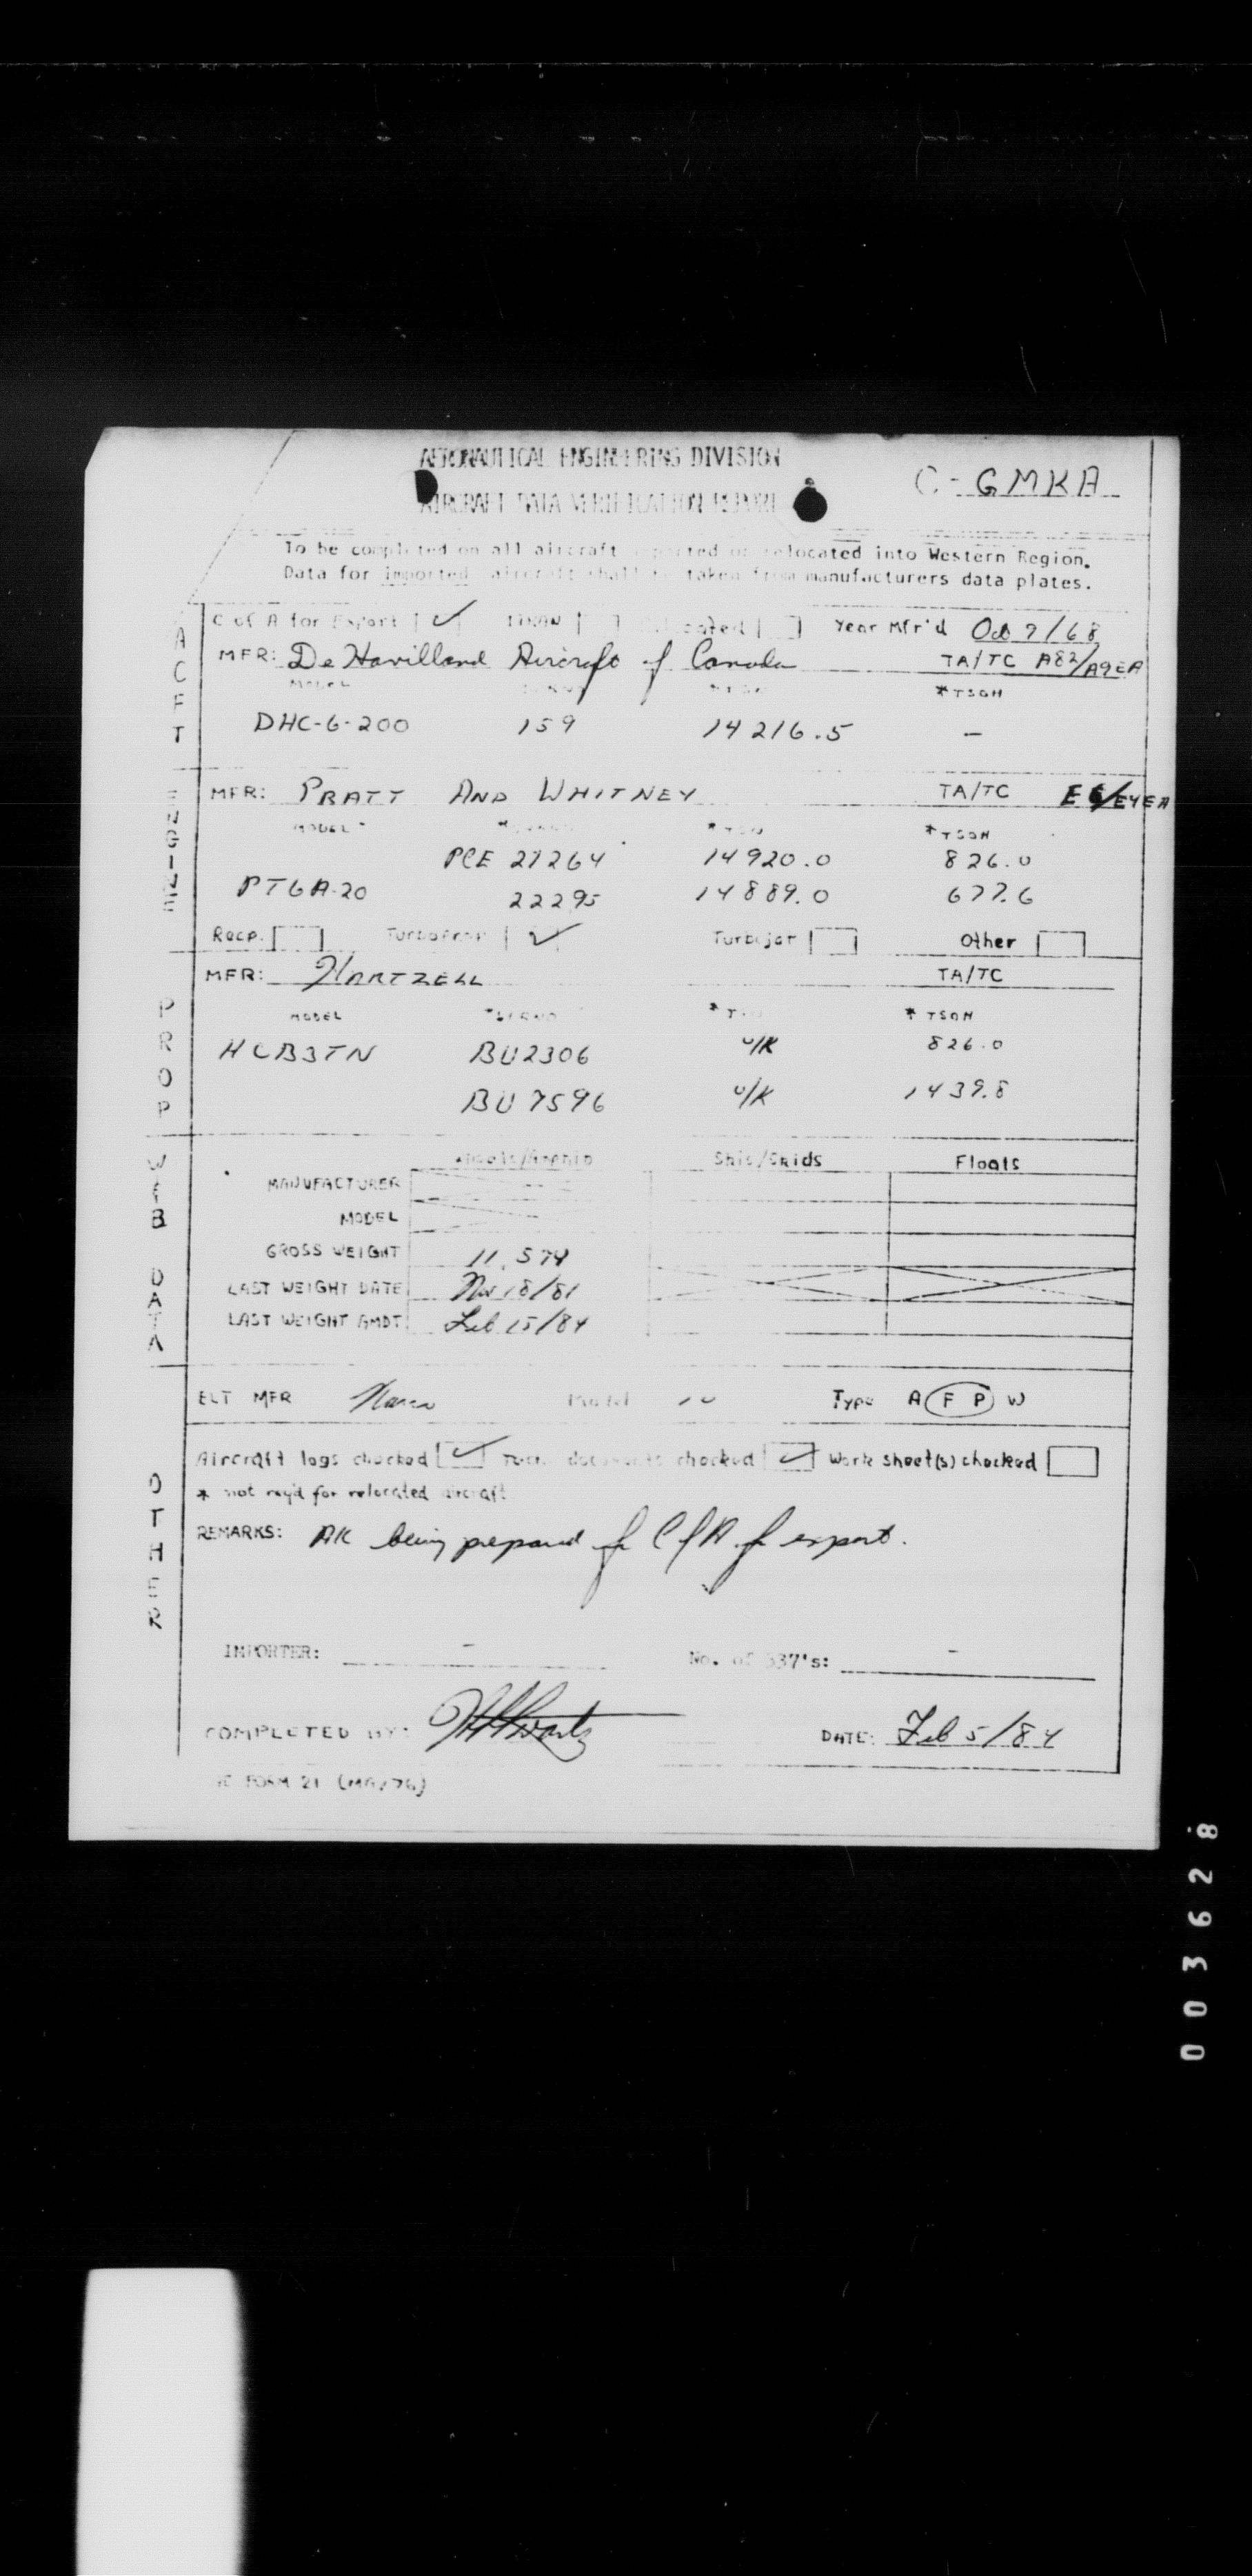 AERONAUTICAL ENGINEERING DIVISION
C-GMKA
AIRCRAFT DATA VERIFICATION REPORT
To be completed on all aircraft imported or relocated into Western Region.
Data for imported aircraft shall be taken from manufacturers data plates.
ACFT
C of A for Export Year Mfr'd Oct 7/68
MFR: De Havilland Aircraft of Canada TA/TC A82/A9EA
MODEL *TSOH
DHC-6-200 159 14216.5 —
ENGINE
MFR: PRATT AND WHITNEY TA/TC E6/E4EA
MODEL *TSOH
PCE 21264 14920.0 826.0
PT6A-20 22295 14889.0 677.6
Recp. Turboprop Turbojet Other
PROP
MFR: HARTZELL TA/TC
MODEL * TSOH
HCB3TN BU2306 U/K 826.0
BU7596 U/K 1439.8
W&B DATA
Skis/Skids Floats
MANUFACTURER
MODEL
GROSS WEIGHT 11,579
LAST WEIGHT DATE Nov 18/81
LAST WEIGHT AMDT. Feb 15/84
OTHER
ELT MFR Narco Model 10 Type A F P W
Aircraft logs checked Tech. documents checked Work sheet(s) checked
* not req'd for relocated aircraft
REMARKS: A/C being prepared for C of A for export.
IMPORTER: - No. of 337's: -
COMPLETED BY: DATE: Feb 5/84
FORM 21 (MAY 76)
003628